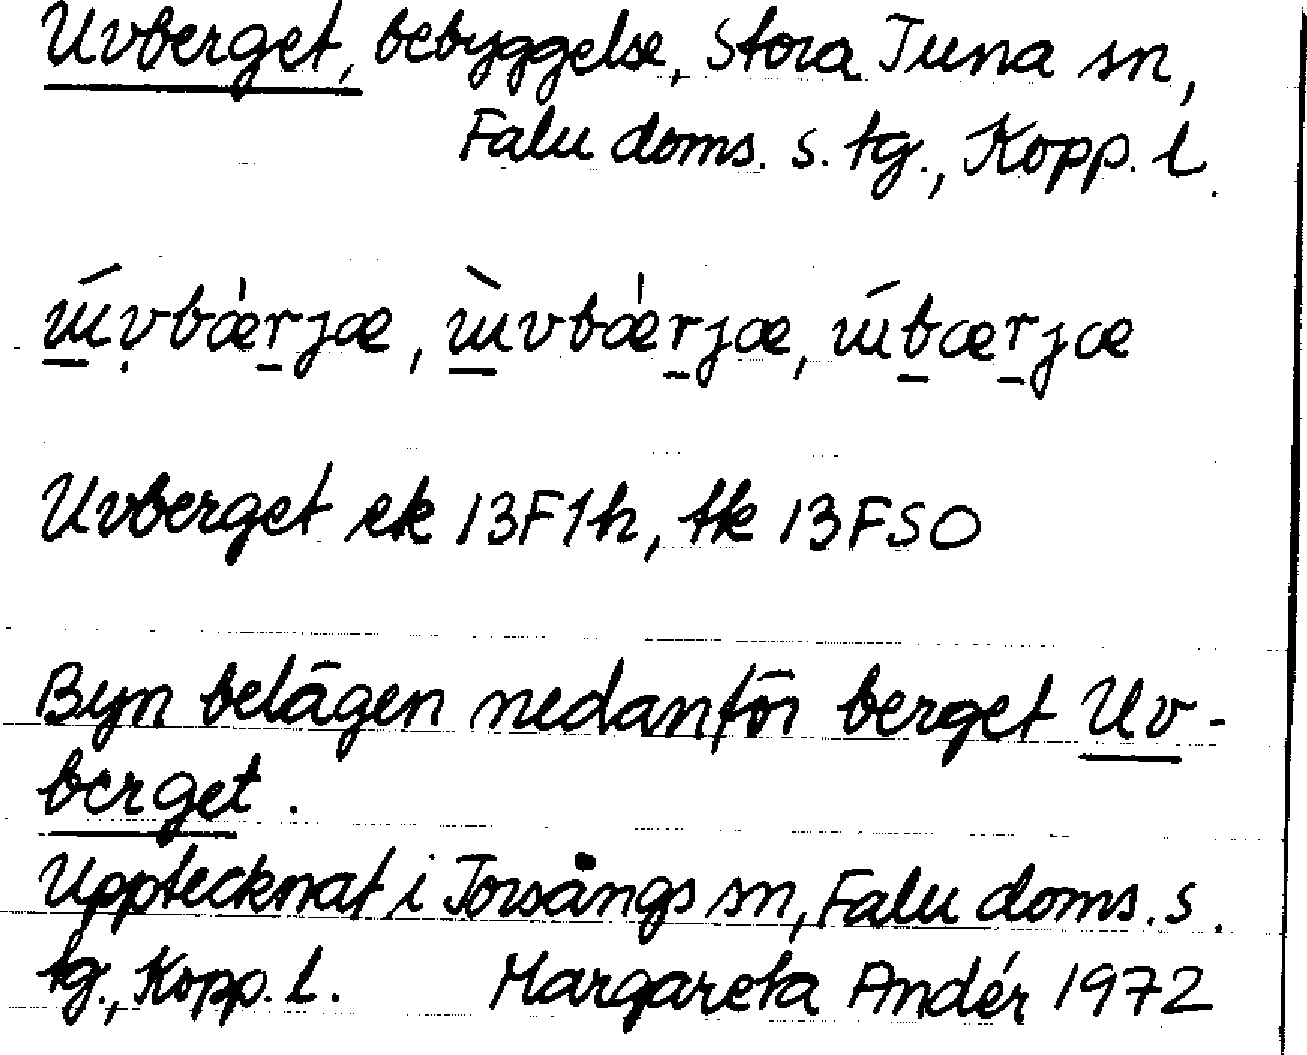 Uvberget, bebyggelse, Stora Tuna sn,
Falu doms. s. tg., Kopp. l.
Uvberget ek 13F1h, tk 13FSO
Byn belägen nedanför berget Uv-
berget.
Upptecknat i Torsångs sn, Falu doms. s.
tg., Kopp. l. Margareta Andér 1972